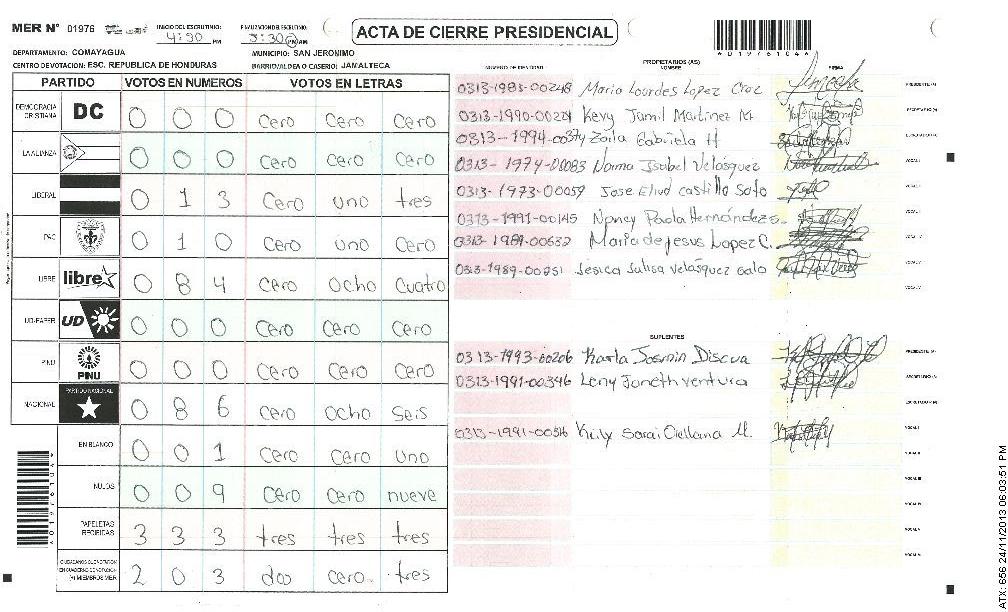 MER N° 01976
INICIO DEL ESCRUTINIO: 4:30 PM
FINALIZACION DEL ESCRUTINIO: 5:30 PM AM
ACTA DE CIERRE PRESIDENCIAL
A01976104A
DEPARTAMENTO: COMAYAGUA
MUNICIPIO: SAN JERONIMO
CENTRO DE VOTACION: ESC. REPUBLICA DE HONDURAS
BARRIO/ALDEA O CASERIO: JAMALTECA
PARTIDO VOTOS EN NUMEROS VOTOS EN LETRAS
DEMOCRACIA CRISTIANA DC 0 0 0 Cero Cero Cero
LA ALIANZA 0 0 0 Cero Cero Cero
LIBERAL 0 1 3 Cero uno tres
PAC 0 1 0 Cero uno Cero
LIBRE libre 0 8 4 Cero Ocho Cuatro
UD-FAPER UD 0 0 0 Cero Cero Cero
PINU PINU 0 0 0 Cero Cero Cero
NACIONAL PARTIDO NACIONAL 0 8 6 Cero Ocho Seis
EN BLANCO 0 0 1 Cero Cero Uno
NULOS 0 0 9 Cero Cero nueve
PAPELETAS RECIBIDAS 3 3 3 tres tres tres
(+) MIEMBROS MER 2 0 3 dos cero tres
A01976104A
NUMERO DE IDENTIDAD PROPIETARIOS (AS) NOMBRE FIRMA
0313-1985-00248 Maria Lourdes Lopez Cruz PRESIDENTE (A)
0313-1990-00201 Kevy Jamil Martinez M. SECRETARIO (A)
0313-1994-00374 Zoila Gabriela H
0313-1974-00083 Norma Isabel Velásquez VOCAL I
0313-1973-00059 Jose Elvid Castillo Soto
0313-1991-00145 Nancy Paola Hernández S.
0313-1989-00632 Maria de Jesus Lopez C.
0313-1989-00251 Jesica Julisa Velásquez Galo
SUPLENTES
0313-1993-00206 Karla Jasmin Discua PRESIDENTE (A)
0313-1991-00346 Leny Janeth Ventura SECRETARIO (A)
0313-1991-00516 Keily Sarai Orellana M. VOCAL I
ATX: 656 24/11/2013 06:03:51 PM